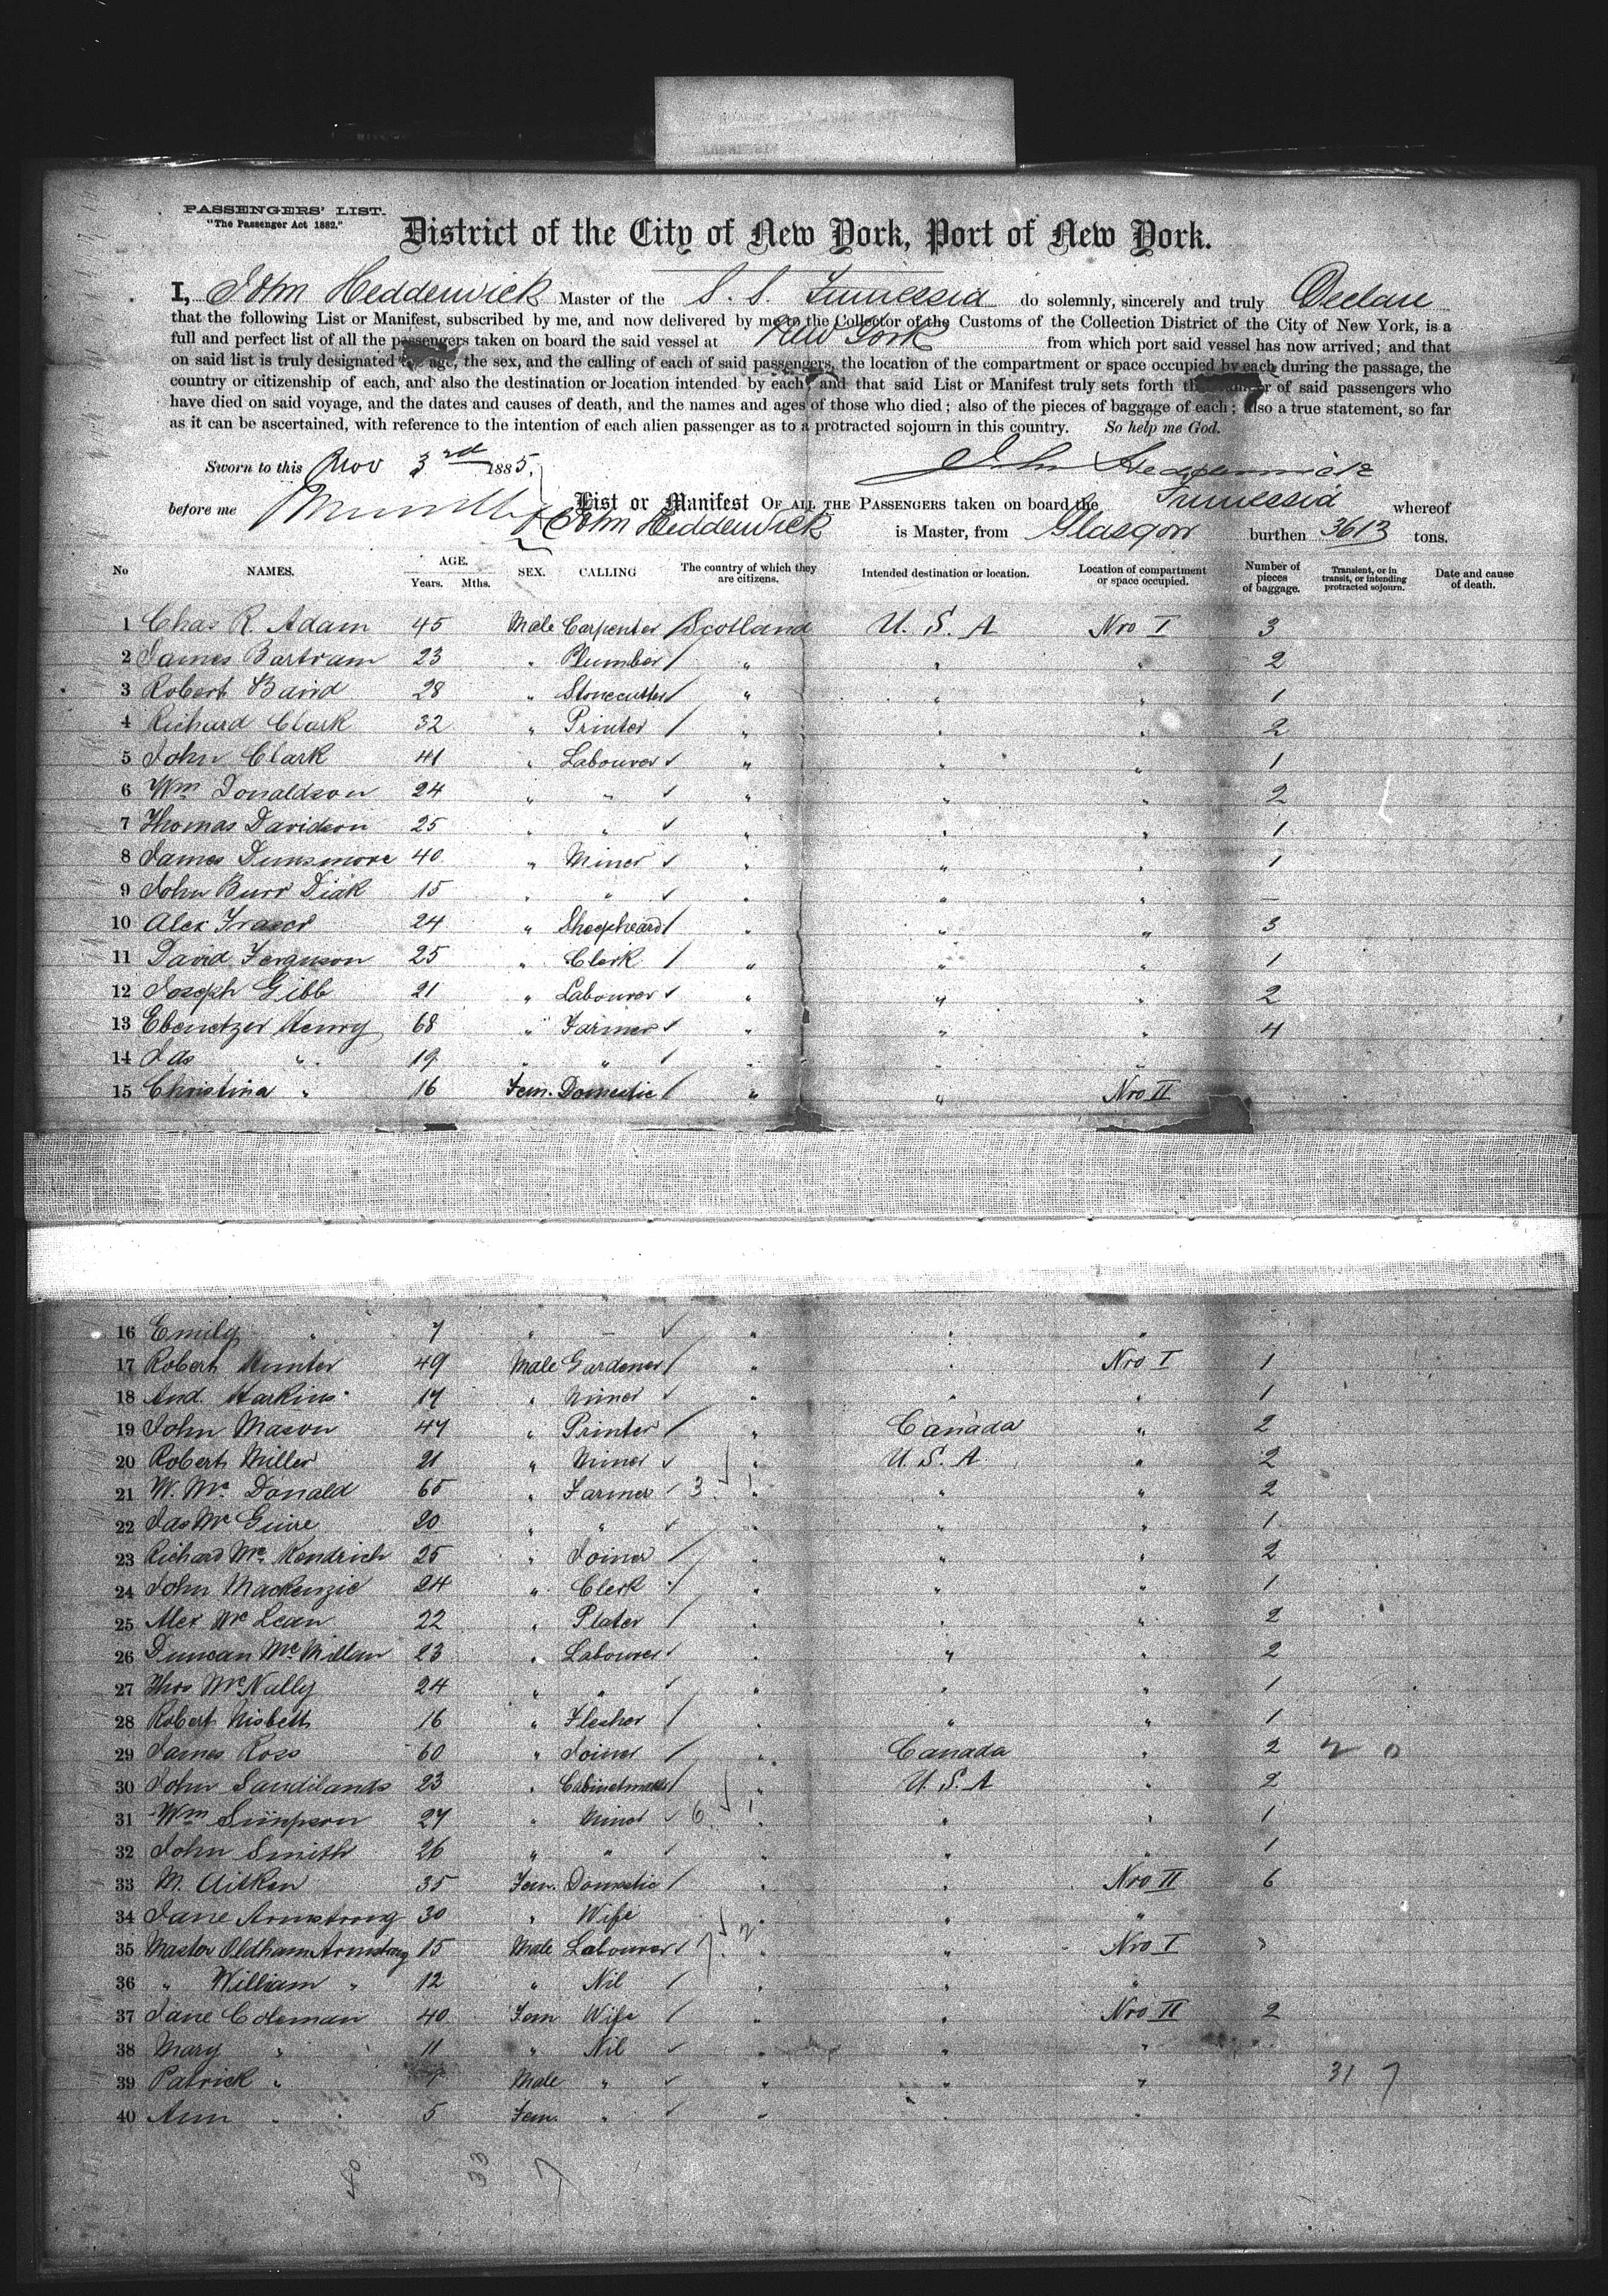 PASSENGERS' LIST.
"The Passenger Act 1882."
District of the City of New York, Port of New York.
I, John Hedderwick Master of the S. S. Furnessia do solemnly, sincerely and truly Declare
that the following List or Manifest, subscribed by me, and now delivered by me to the Collector of the Customs of the Collection District of the City of New York, is a
full and perfect list of all the passengers taken on board the said vessel at New York from which port said vessel has now arrived; and that
on said list is truly designated the age, the sex, and the calling of each of said passengers, the location of the compartment or space occupied by each during the passage, the
country or citizenship of each, and also the destination or location intended by each and that said List or Manifest truly sets forth the number of said passengers who
have died on said voyage, and the dates and causes of death, and the names and ages of those who died; also of the pieces of baggage of each; also a true statement, so far
as it can be ascertained, with reference to the intention of each alien passenger as to a protracted sojourn in this country. So help me God.
Sworn to this Nov 3rd 1885, John Hedderwick
before me List or Manifest OF ALL THE PASSENGERS taken on board the Furnessia whereof
John Hedderwick is Master, from Glasgow burthen 3613 tons.
No NAMES. AGE. Years. Mths. SEX. CALLING The country of which they are citizens. Intended destination or location. Location of compartment or space occupied. Number of pieces of baggage. Transient, or in transit, or intending protracted sojourn. Date and cause of death.
1 Chas R. Adam 45 Male Carpenter / Scotland U. S. A Nro I 3
2 James Bartram 23 " Plumber / " " " 2
3 Robert Baird 28 " Stonecutter / " " " 1
4 Richard Clark 32 " Printer / " " " 2
5 John Clark 41 " Labourer ✓ " " " 1
6 Wm Donaldson 24 " " ✓ " " " 2
7 Thomas Davidson 25 " " ✓ " " " 1
8 James Dunsmore 40 " Miner ✓ " " " 1
9 John Burr Diak 15 " " ✓ " " " –
10 Alex Fraser 24 " Shepheard / " " " 3
11 David Ferguson 25 " Clerk / " " " 1
12 Joseph Gibb 21 " Labourer ✓ " " " 2
13 Ebenetzer Henry 68 " Farmer ✓ " " " 4
14 Jas " 19 " " ✓ " " "
15 Christina " 16 Fem. Domestic / " " Nro II
16 Emily " 7 " – ✓ " " "
17 Robert Hunter 49 Male Gardener / " " Nro I 1
18 And. Harkins 17 " Miner ✓ " " " 1
19 John Mason 47 " Printer / " Canada " 2
20 Robert Miller 21 " Miner ✓ " U. S. A. " 2
21 W. Mc Donald 65 " Farmer / 3 " " " 2
22 Jas Mc Guire 20 " " ✓ " " " 1
23 Richard Mc Kendrich 25 " Joiner / " " " 2
24 John Mackenzie 24 " Clerk / " " " 1
25 Alex Mc Lean 22 " Plater / " " " 2
26 Duncan Mc Millan 23 " Labourer ✓ " " " 2
27 Thos McNally 24 " " ✓ " " " 1
28 Robert Nisbett 16 " Flesher / " " " 1
29 James Ross 60 " Joiner / " Canada " 2 2 0
30 John Sandilands 23 " Cabinetmaker / " U. S. A " 2
31 Wm Simpson 27 " Miner ✓ 6 " " " 1
32 John Smith 26 " " ✓ " " " 1
33 M. Aitken 35 Fem. Domestic / " " Nro II 6
34 Jane Armstrong 30 " Wife " " "
35 Master Oldham Armstrong 15 Male Labourer ✓ 7 2 " " Nro I
36 " William " 12 " Nil / " " "
37 Jane Coleman 40 Fem Wife / " " Nro II 2
38 Mary " 11 " Nil ✓ " " "
39 Patrick " Male " ✓ " " " 31 7
40 Ann " 5 Fem. " ✓ " " "
40 33 7